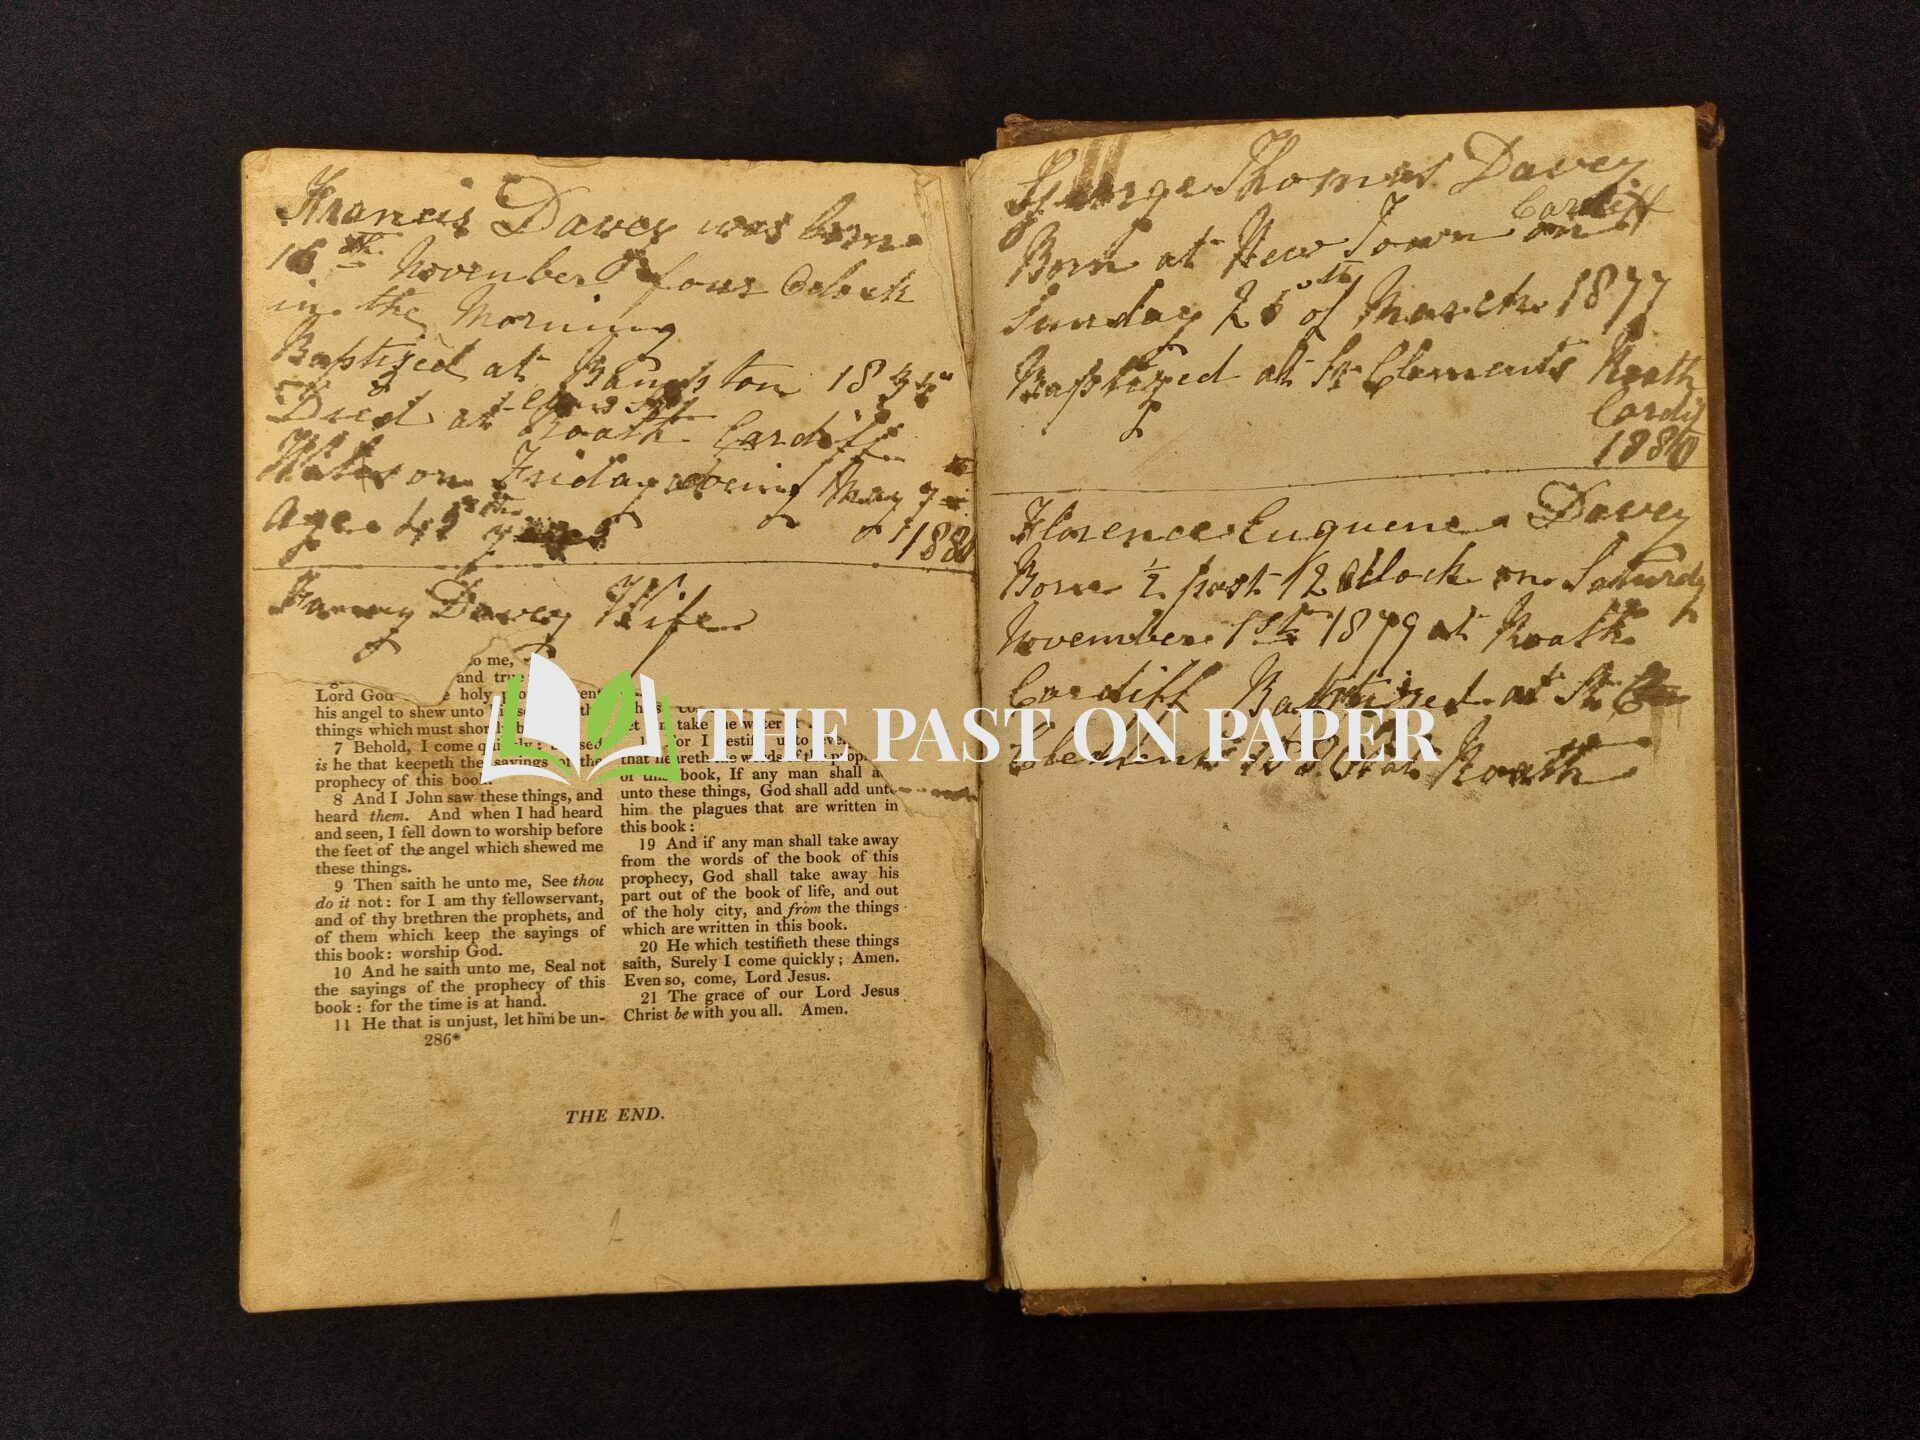 Francis Davey was born
16th November four Oclock
in the Morning
Baptized at Bampton 1835
Died at Roath Cardiff
Wales on Friday being May 7
Age 42 years 1880
Fanny Davey Wife
to me,
and true
Lord God holy
his angel to shew unto
things which must shortly b
7 Behold, I come quickly: blessed
is he that keepeth the sayings of the
prophecy of this book.
8 And I John saw these things, and
heard them. And when I had heard
and seen, I fell down to worship before
the feet of the angel which shewed me
these things.
9 Then saith he unto me, See thou
do it not: for I am thy fellowservant,
and of thy brethren the prophets, and
of them which keep the sayings of
this book: worship God.
10 And he saith unto me, Seal not
the sayings of the prophecy of this
book: for the time is at hand.
11 He that is unjust, let him be un-
286*
take the water
for I testify unto every
that heareth the words of the prop
of this book, If any man shall a
unto these things, God shall add unto
him the plagues that are written in
this book:
19 And if any man shall take away
from the words of the book of this
prophecy, God shall take away his
part out of the book of life, and out
of the holy city, and from the things
which are written in this book.
20 He which testifieth these things
saith, Surely I come quickly; Amen.
Even so, come, Lord Jesus.
21 The grace of our Lord Jesus
Christ be with you all. Amen.
THE END.
George Thomas Davey
Cardiff
Born at New Town on
Sunday 25th of March 1877
Baptized at St Clements Roath
Cardiff
1880
Florence Euguene Davey
Born ½ past 12 Oclock on Saturdy
November 1st 1879 at Roath
Cardiff Baptized at St
Clements 1880 at Roath
THE PAST ON PAPER